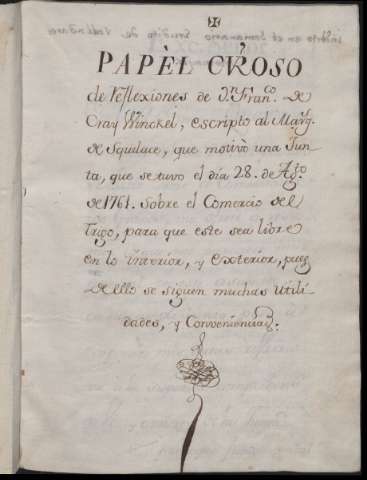 inserto en el Semanario Erudito de Valladares
PAPÈL CUR̃OSO
de reflexiones de Dn. Franco. de
Cray Winckel, escripto al Marq.
de Squilace, que motivò una Jun-
ta, que se tuvo el dia 28. de Agto.
de 1761. sobre el Comercio del
Trigo, para que este sea libre
en lo interior, y exterior, pues
de ello se siguen muchas utili-
dades, y Conveniencias.